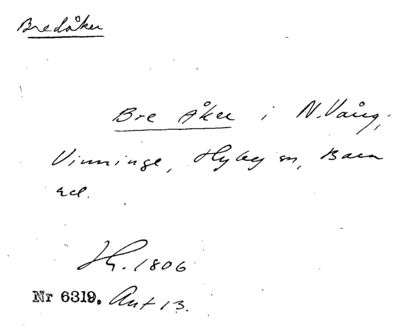 Bredåker
Bre Åker i N. Vång,
Vinninge, Hyby sn, Bara
hd.
Hy. 1806
Nr 6319. Akt 13.